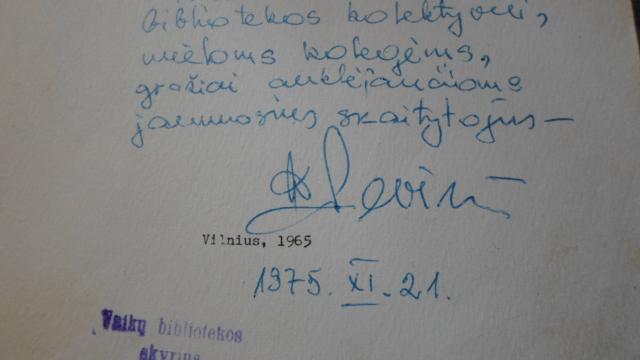 bibliotekos kolektyvui,
mieloms kolegėms,
gražiai auklėjančioms
jaunuosius skaitytojus —
Vilnius, 1965
1975. XI. 21.
Vaikų bibliotekos
skyrius